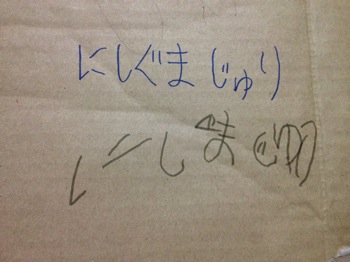 にしぐま じゅり
にしぐま じゅり